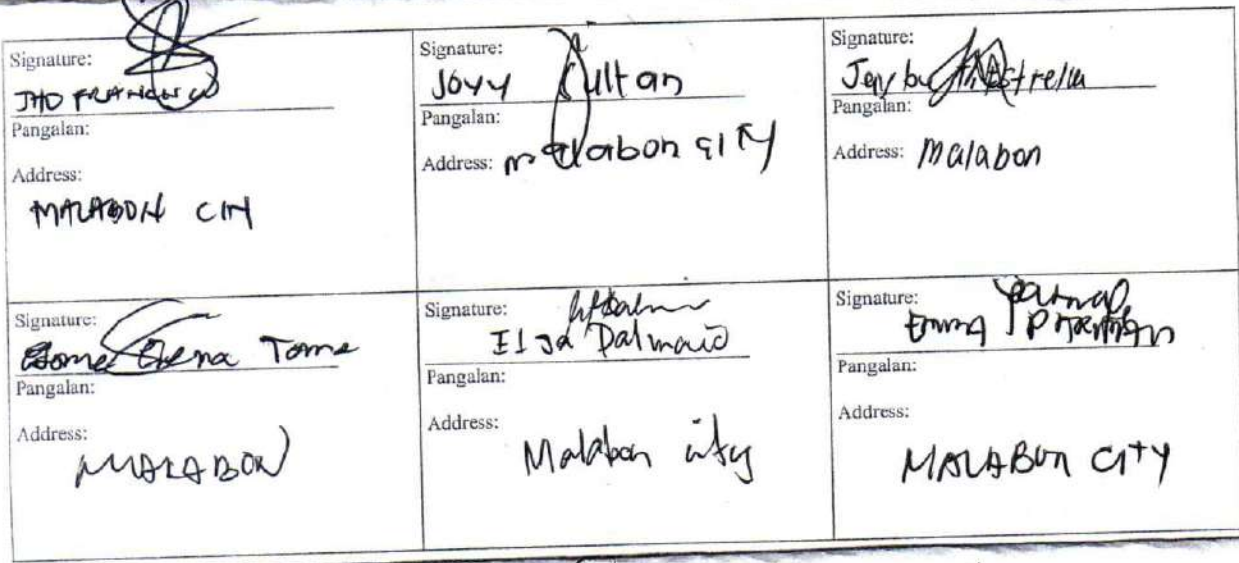 Signature:
JHO FRANCISCO
Pangalan:
Address:
MALABON CITY
Signature:
Joyy Sultan
Pangalan:
Address: malabon CITY
Signature:
Estrella
Pangalan:
Address: Malabon
Signature:
Elena Tome
Pangalan:
Address:
MALABON
Signature:
Elsa Palmaio
Pangalan:
Address:
Malabon city
Signature:
Emma
Pangalan:
Address:
MALABON CITY